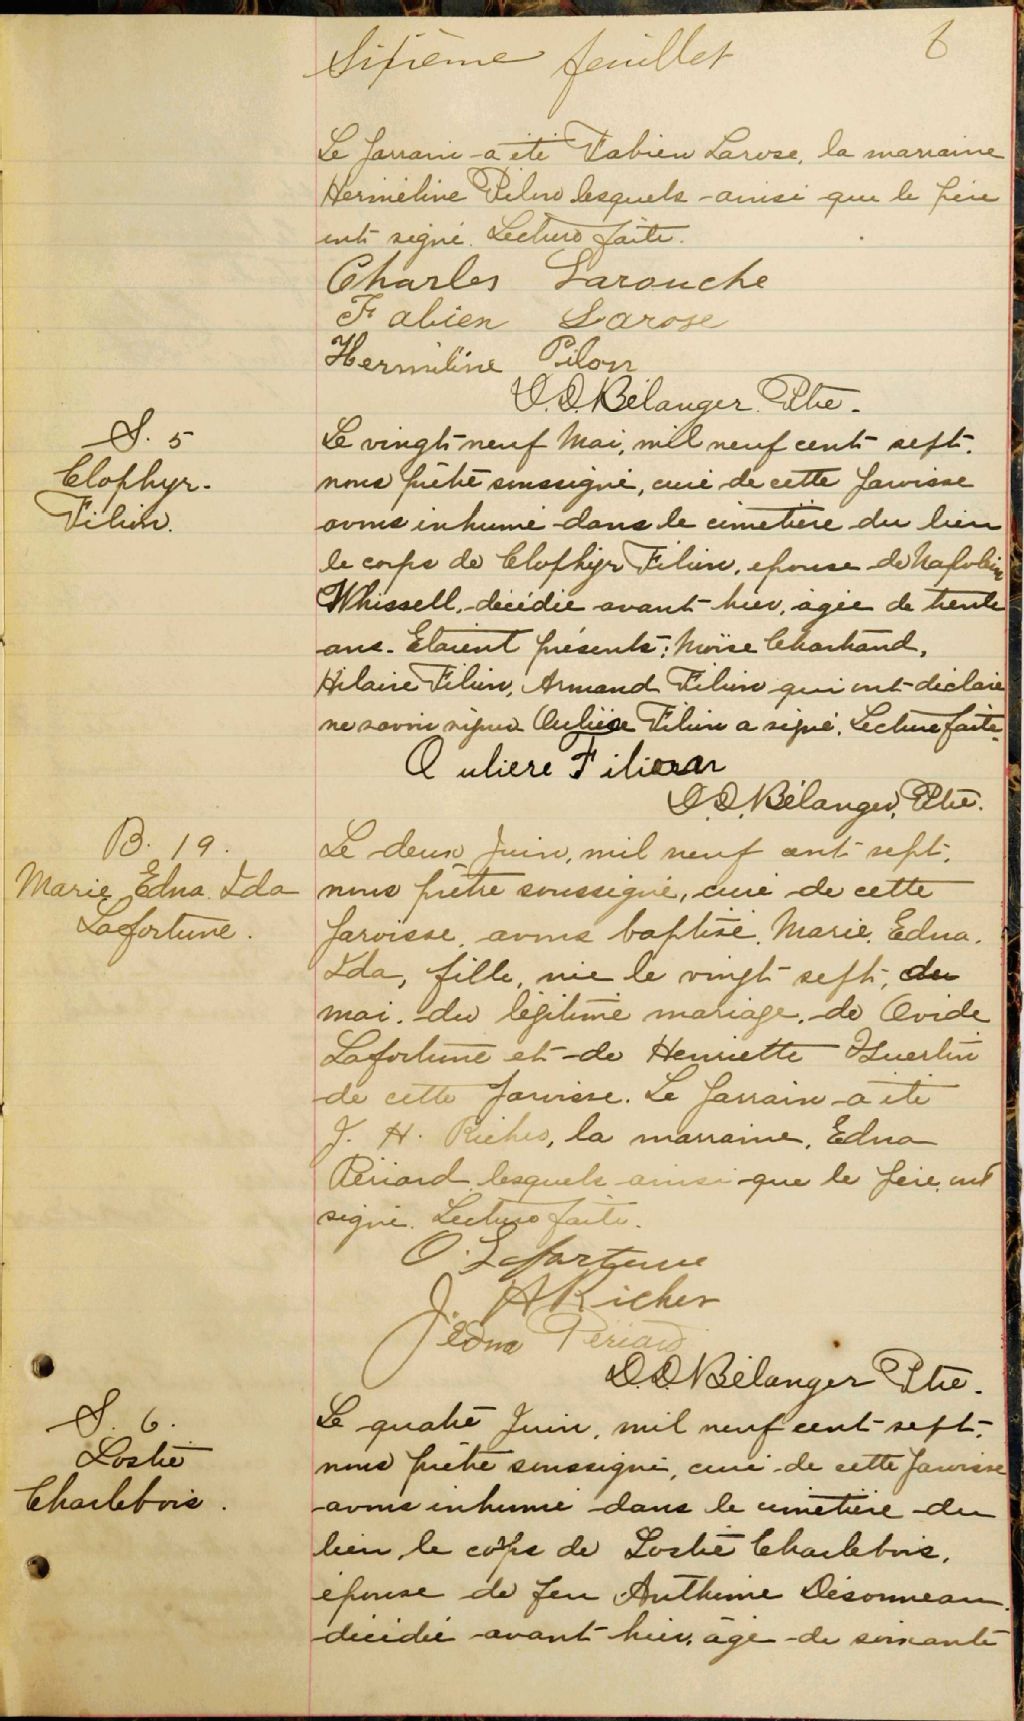 Sixième feuillet 6
Le parrain a été Fabien Larose, la marraine
Herméline Pilon lesquels ainsi que le père
ont signé. Lecture faite.
Charles Larouche
Fabien Larose
Herméline Pilon
D. D. Bélanger Ptre.
S. 5
Clophyr.
Filion.
Le vingt-neuf Mai, mil neuf cent sept.
nous prêtre soussigné, curé de cette paroisse
avons inhumé dans le cimetière du lieu
le corps de Clophyr Filion, épouse de Napoléon
Whissell, décédée avant-hier, âgée de trente
ans. Etaient présents: Moïse Chartrand,
Hilaire Filion, Armand Filion qui ont déclaré
ne savoir signer Ouliere Filion a signé. Lecture faite.
Ouliere Filion
D. D. Bélanger, Ptre.
B. 19.
Marie Edna Ida
Lafortune.
Le deux Juin, mil neuf cent sept,
nous prêtre soussigné, curé de cette
paroisse, avons baptisé, Marie, Edna.
Ida, fille, née le vingt sept, de
mai, du légitime mariage, de Ovide
Lafortune et de Henriette Guertin
de cette paroisse. Le parrain a été
J. H. Richer, la marraine, Edna
Périard lesquels ainsi que le père, ont
signé. Lecture faite.
O. Lafortune
J. H Richer
Edna Périard
D. D. Bélanger Ptre.
S. 6.
Loskée
Charlebois.
Le quatre Juin, mil neuf cent sept,
nous prêtre soussigné, curé de cette paroisse
avons inhumé dans le cimetière du
lieu, le corps de Charlebois,
épouse de feu Anthime Désormeau.
décédée avant hier, âgé de soixante